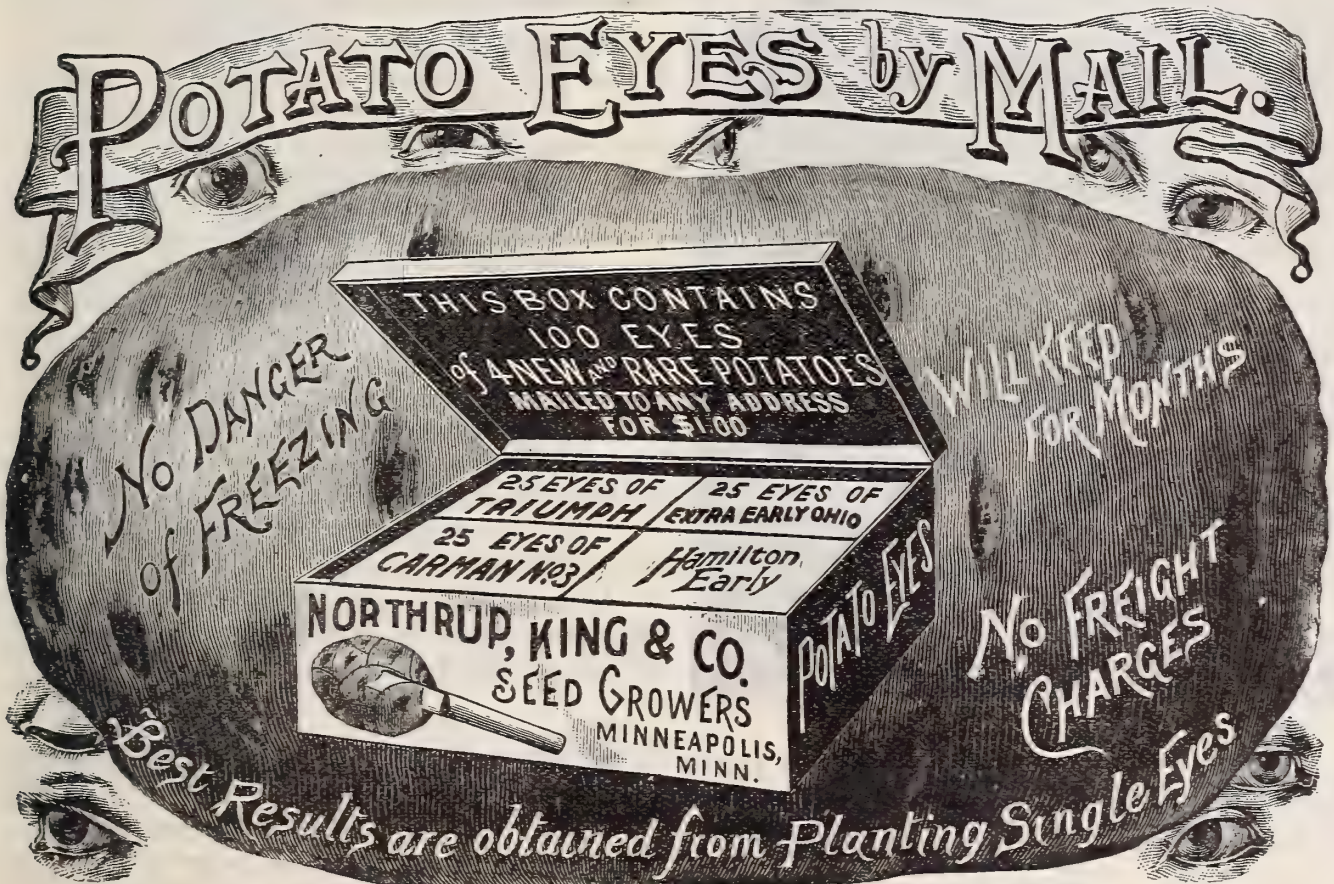 POTATO EYES by MAIL.
THIS BOX CONTAINS
100 EYES
of 4 NEW AND RARE POTATOES
MAILED TO ANY ADDRESS
FOR $1.00
NO DANGER
of FREEZING
WILL KEEP
FOR MONTHS
25 EYES OF
TRIUMPH
25 EYES OF
EXTRA EARLY OHIO
25 EYES OF
CARMAN No3
Hamilton
Early
NORTHRUP, KING & CO.
SEED GROWERS
MINNEAPOLIS,
MINN.
POTATO EYES
NO FREIGHT
CHARGES
Best Results are obtained from Planting Single Eyes